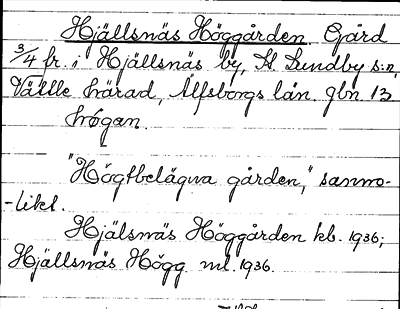 Hjällsnäs Höggården. Gård
3/4 fr. i Hjällsnäs by, St. Lundby s:n,
Vättle härad, Älfsborgs län. gbn 13
högan.
"Högtbelägna gården," sanno-
-likt.
Hjälsnäs Höggården kb. 1936;
Hjällsnäs Högg ml. 1936.